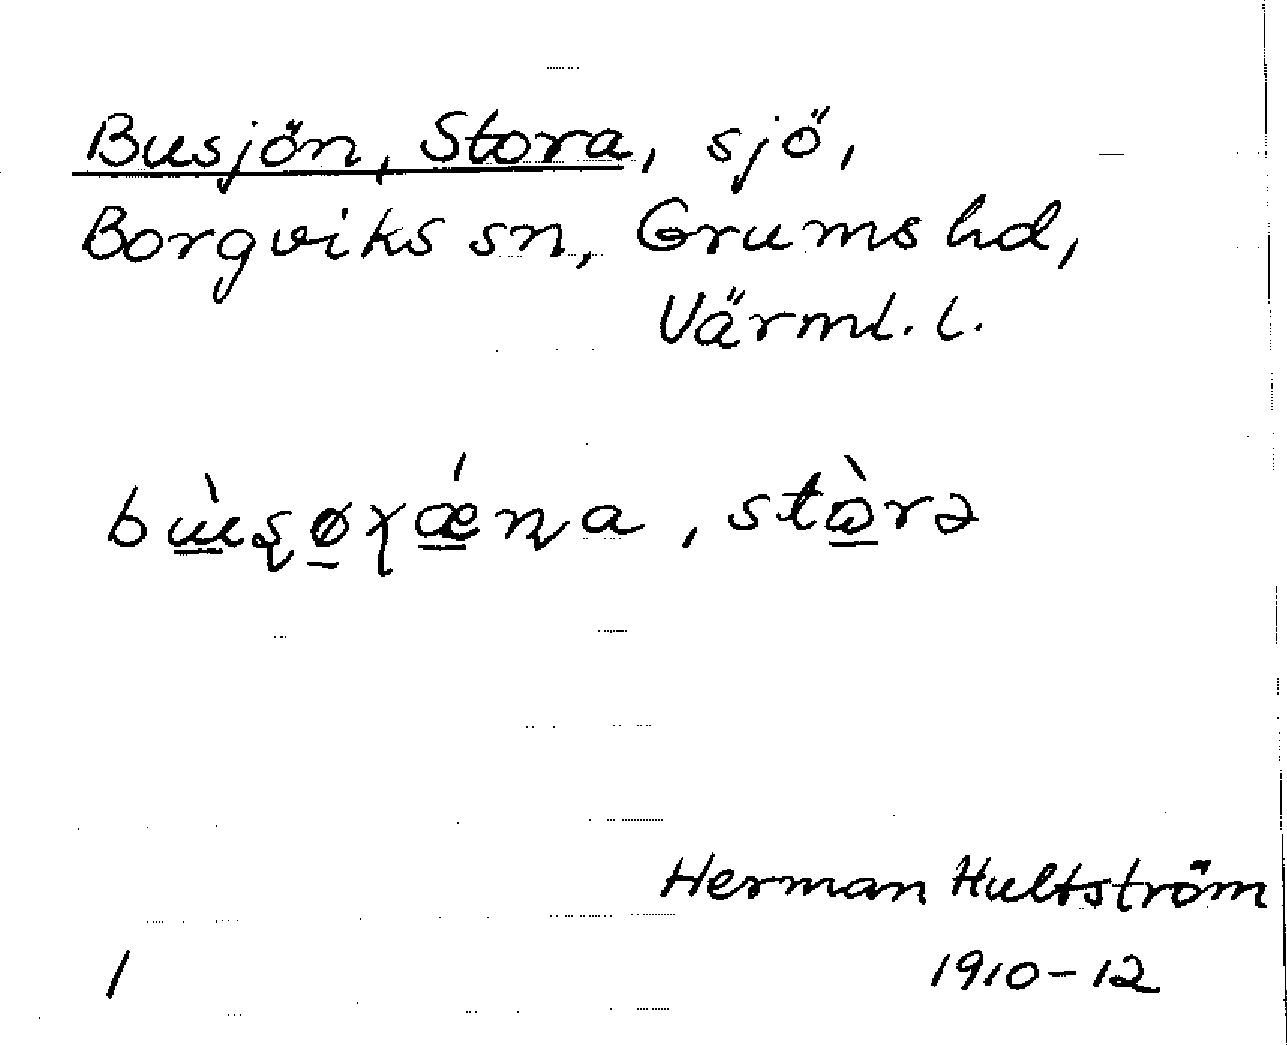 Busjön, Stora, sjö,
Borgviks sn, Grums hd,
Värml. l.
stɷ̀rə
Herman Hultström
1 1910-12